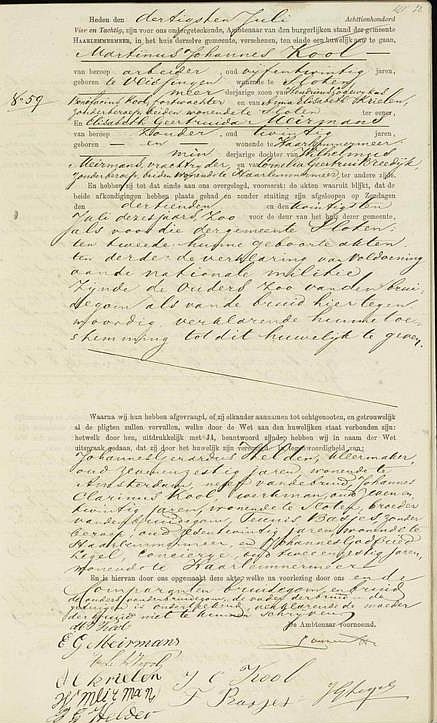 Heden den dertigsten Juli Achttienhonderd
Vier en Tachtig, zijn voor ons ondergeteekende, Ambtenaar van den burgerlijken stand der gemeente
HAARLEMMERMEER, in het huis derzelve gemeente, verschenen, ten einde een huwelijk aan te gaan,
Martinus Johannes Kool
van beroep arbeider, oud vijfentwintig jaren,
geboren te wonende te Sloten
No 59 meer derjarige zoon van
Kool, en Anna Elisabeth Krielen,
zonder beroep, beiden wonende te Sloten ter eener,
En Elisabeth Geertruida Meirmans
van beroep zonder, oud twintig jaren,
geboren — en wonende te Haarlemmermeer
min derjarige dochter van Wilhelmus
Meirmans, en
zonder beroep, beiden wonende te Haarlemmermeer, ter andere zijde.
En hebben zij tot dat einde aan ons overgelegd, vooreerst: de akten waaruit blijkt, dat de
beide afkondigingen hebben plaats gehad en zonder stuiting zijn afgeloopen op Zondagen
den dertienden en den twintigsten
Juli dezes jaars, zoo voor de deur van het huis dezer gemeente,
als voor die der gemeente Sloten:
ten tweede hunne geboorte akten
ten derde de verklaring van voldoening
aan de nationale militie
Zijnde de ouders zoo van den brui
degom als van de bruid hier tegen
woordig verklarende hunne toe
stemming tot dit huwelijk te geven.
Waarna wij hun hebben afgevraagd, of zij elkander aannamen tot echtgenooten, en getrouwelijk
al de pligten zullen vervullen, welke door de Wet aan den huwelijken staat verbonden zijn:
hetwelk door hen, uitdrukkelijk met JA, beantwoord zijnde, hebben wij in naam der Wet
uitspraak gedaan, dat zij door het huwelijk zijn vereenigd in tegenwoordigheid van:
Johannes Gerardus Helder, kleermaker,
oud jaren, wonende te
Amsterdam, neef van de bruid, Johannes
Clarinus Kool, werkman, oud
twintig jaren, wonende te Sloten, broeder
van den bruidegom, Teunis Basjes, zonder
beroep, oud jaren, wonende te
Haarlemmermeer en Johannes Godfried
Legel, concierge, oud jaren,
wonende te Haarlemmermeer
En is hiervan door ons opgemaakt deze akte, welke na voorlezing door ons en de
Comparanten bruidegom, en bruid
de ouders van den bruidegom, de vader der bruid en de
getuigen is onderteekend, verklarende de moeder
der bruid niet te kunnen schrijven
De Ambtenaar voornoemd.
M J Kool
E G Meirmans
Kool
A E Krielen J C Kool
W Meirman T Basjes J G Legel
J G Helder